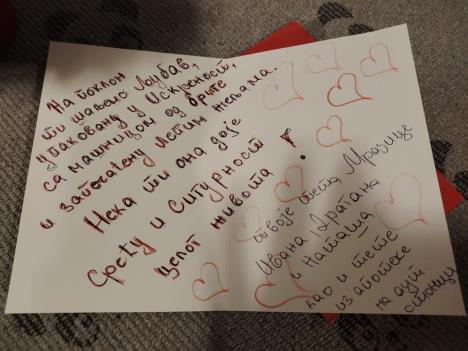 На поклон
ти шаљемо Љубав,
упаковану у Искреност,
са машницом од бриге
и закићену лепим жељама.
Нека ти она доје
срећу и сигурност
целог живота!
твоје тета Мразице
Ивана Драгана
и Наташа
као и тете
из апотеке
на аут.
станици